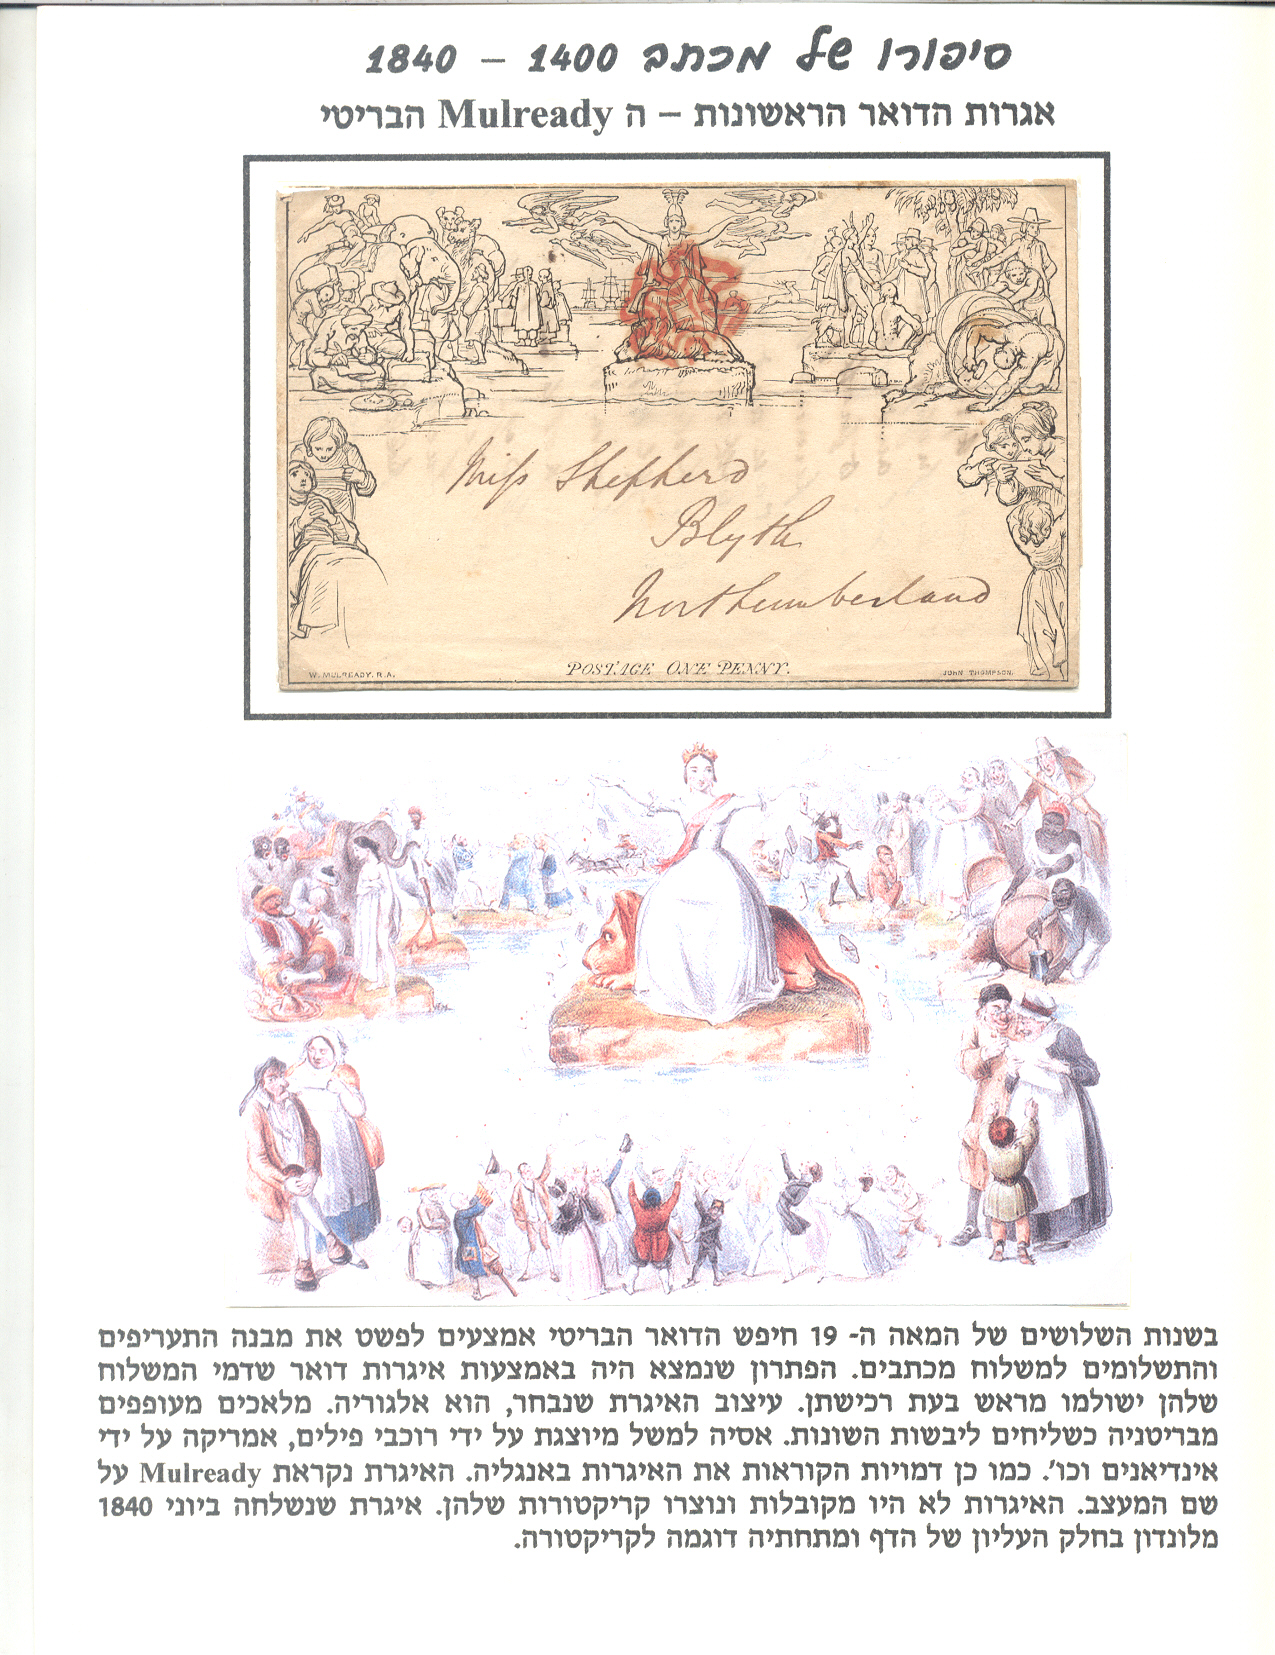 סיפורו של מכתב 1400 – 1840
אגרות הדואר הראשונות – ה Mulready הבריטי
Miss Shepherd
Blyth
Northumberland
POSTAGE ONE PENNY.
W. MULREADY. R.A.
JOHN THOMPSON.
בשנות השלושים של המאה ה- 19 חיפש הדואר הבריטי אמצעים לפשט את מבנה התעריפים
והתשלומים למשלוח מכתבים. הפתרון שנמצא היה באמצעות איגרות דואר שדמי המשלוח
שלהן ישולמו מראש בעת רכישתן. עיצוב האיגרת שנבחר, הוא אלגוריה. מלאכים מעופפים
מבריטניה כשליחים ליבשות השונות. אסיה למשל מיוצגת על ידי רוכבי פילים, אמריקה על ידי
אינדיאנים וכו'. כמו כן דמויות הקוראות את האיגרות באנגליה. האיגרת נקראת Mulready על
שם המעצב. האיגרות לא היו מקובלות ונוצרו קריקטורות שלהן. איגרת שנשלחה ביוני 1840
מלונדון בחלק העליון של הדף ומתחתיה דוגמה לקריקטורה.